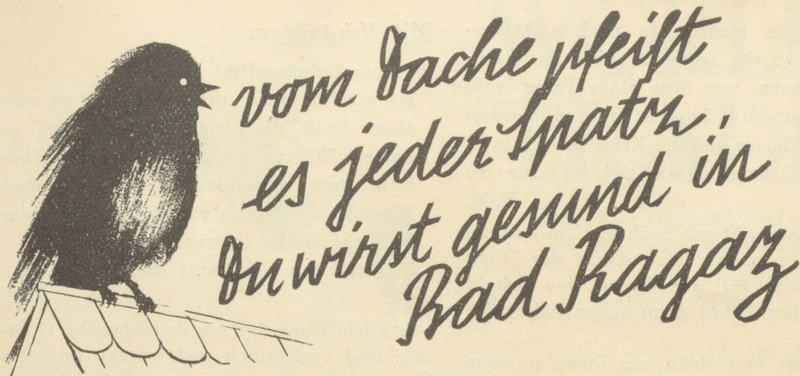 vom Dache pfeift
es jeder Spatz,
Du wirst gesund in
Bad Ragaz